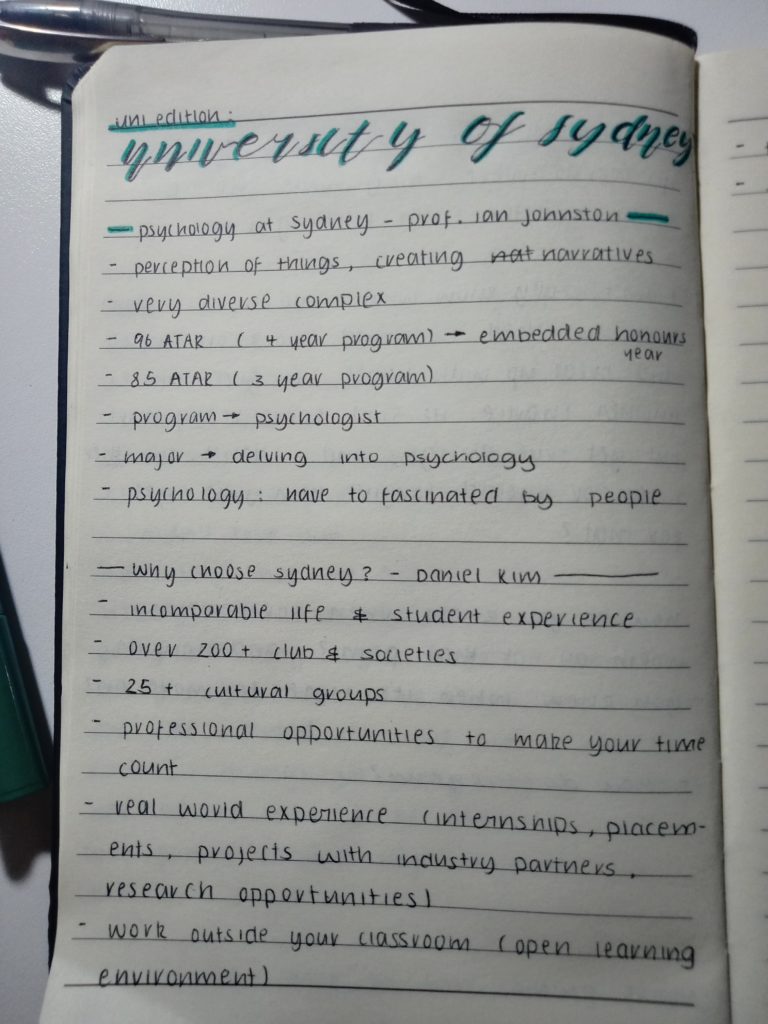 uni edition:
university of sydney
— psychology at sydney - prof. ian johnston —
- perception of things, creating nat narratives
- very diverse complex
- 96 ATAR ( 4 year program) → embedded honours
year
- 85 ATAR ( 3 year program)
- program → psychologist
- major → delving into psychology
- psychology : have to fascinated by people
— why choose sydney? - Daniel Kim —
- incomparable life & student experience
- over 200+ club & societies
- 25 + cultural groups
- professional opportunities to make your time
count
- real world experience (internships, placem-
ents, projects with industry partners,
research opportunities)
- work outside your classroom (open learning
environment)